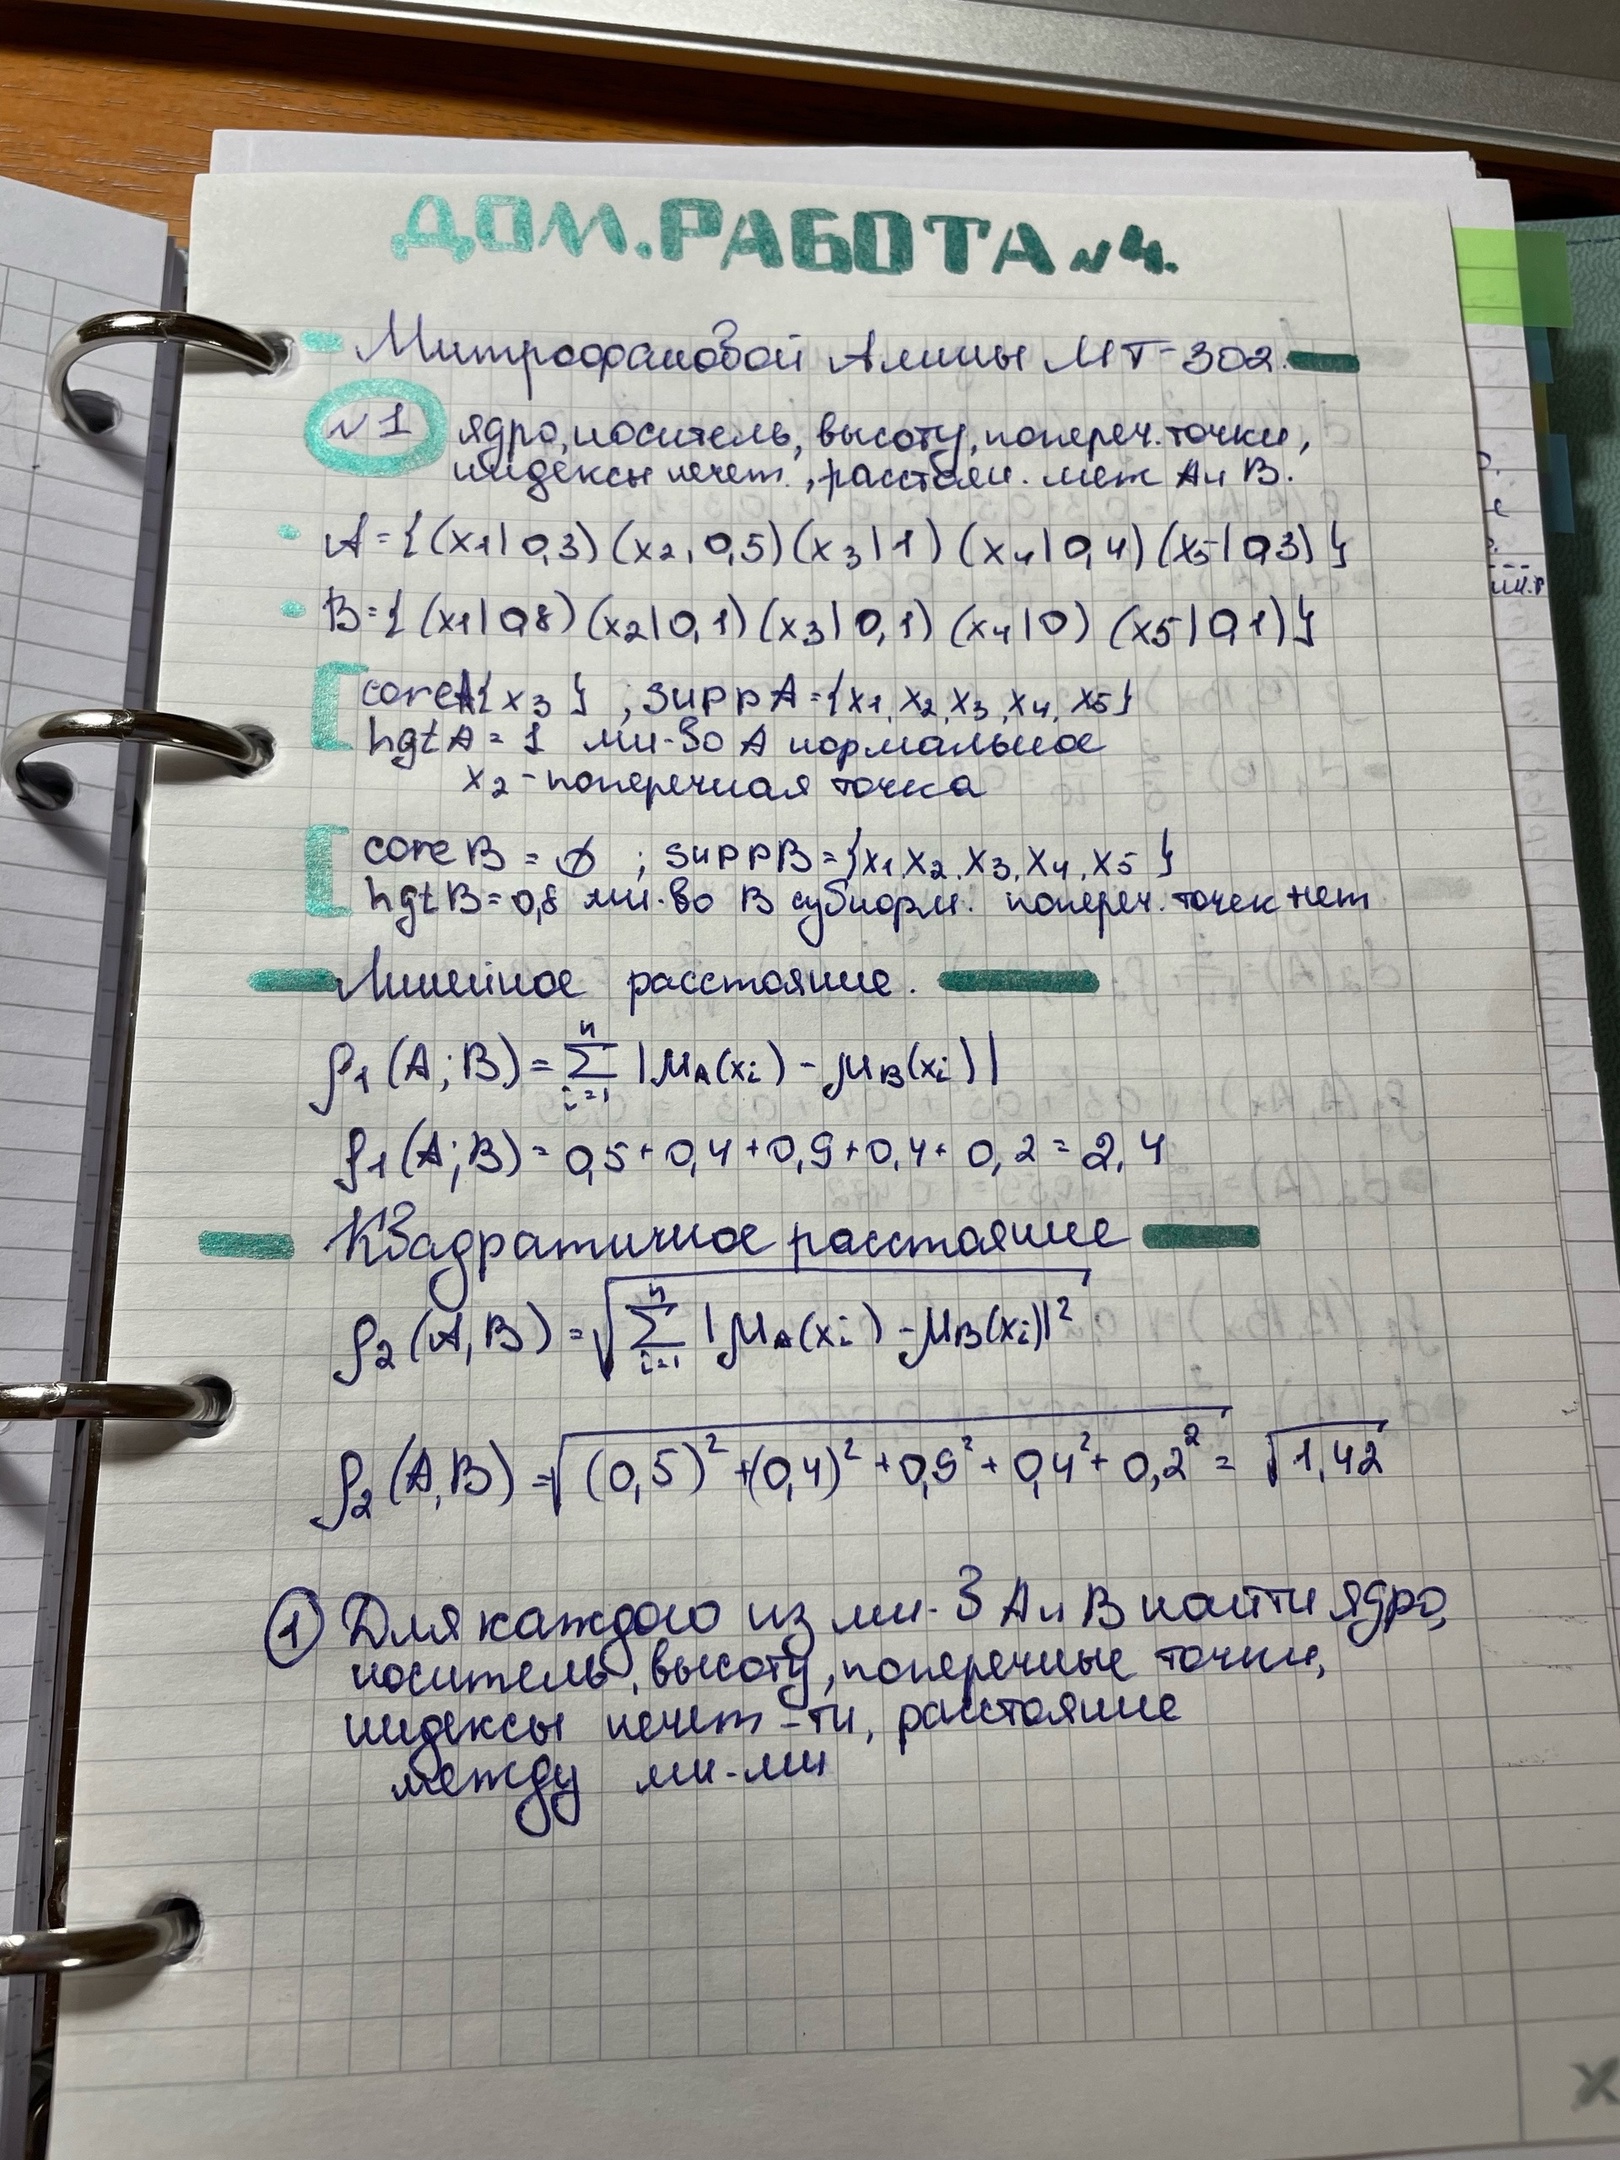 ДОМ.РАБОТА №4.
Митрофановой Алины МТ-302.
№1 ядро, носитель, высоту, попереч. точки,
индексы нечет., расстоян. меж А и В.
A={(x1|0,3)(x2,0,5)(x3|1)(x4|0,4)(x5|0,3)}
B={(x1|0,8)(x2|0,1)(x3|0,1)(x4|0)(x5|0,1)}
coreA{x3} ; suppA={x1,x2,x3,x4,x5}
hgtA=1 мн-во А нормальное
x2-поперечная точка
core B = ∅ ; suppB={x1,x2,x3,x4,x5}
hgtB=0,8 мн-во В субнорм. попереч. точек нет
Линейное расстояние.
ρ1(A;B)=∑ⁿᵢ₌₁ |μA(xi)-μB(xi)|
ρ1(A;B)=0,5+0,4+0,9+0,4+0,2=2,4
Квадратичное расстояние
ρ2(A,B)=√∑ⁿᵢ₌₁ |μA(xi)-μB(xi)|²
ρ2(A,B)=√(0,5)²+(0,4)²+0,9²+0,4²+0,2²=√1,42
1 Для каждого из мн-в А и В найти ядро,
носитель, высоту, поперечные точки,
индексы нечет-ти, расстояние
между мн-ми